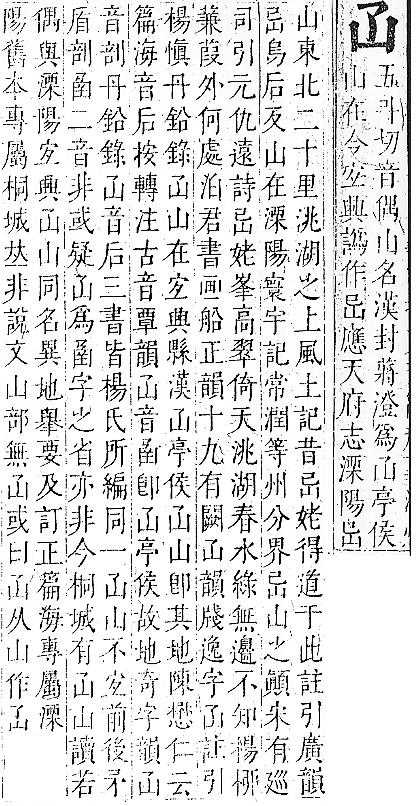 五斗切音偶山名漢封蔣澄爲亭侯
山在今宜興譌作岊應天府志溧陽岊
山東北二十里洮湖之上風土記昔岊姥得道于此註引廣韻
岊烏后反山在溧陽寰宇記常潤等州分界岊山之顚宋有廵
司引元仇遠詩岊姥峯高翠倚天洮湖春水綠無邊不知楊柳
蒹葭外何處泊君書画船正韻十九有闕韻牋逸字註引
楊愼丹鉛錄山在宜興縣漢亭侯山卽其地陳懋仁云
篇海音后按轉注古音覃韻音圅卽亭侯故地奇字韻
音剖丹鉛錄音后三書皆楊氏所編同一山不宜前後矛
盾剖圅二音非或疑爲圅字之省亦非今桐城有山讀若
偶與溧陽宜興山同名異地舉要及訂正篇海專屬溧
陽舊本專屬桐城𠀤非說文山部無或曰从山作